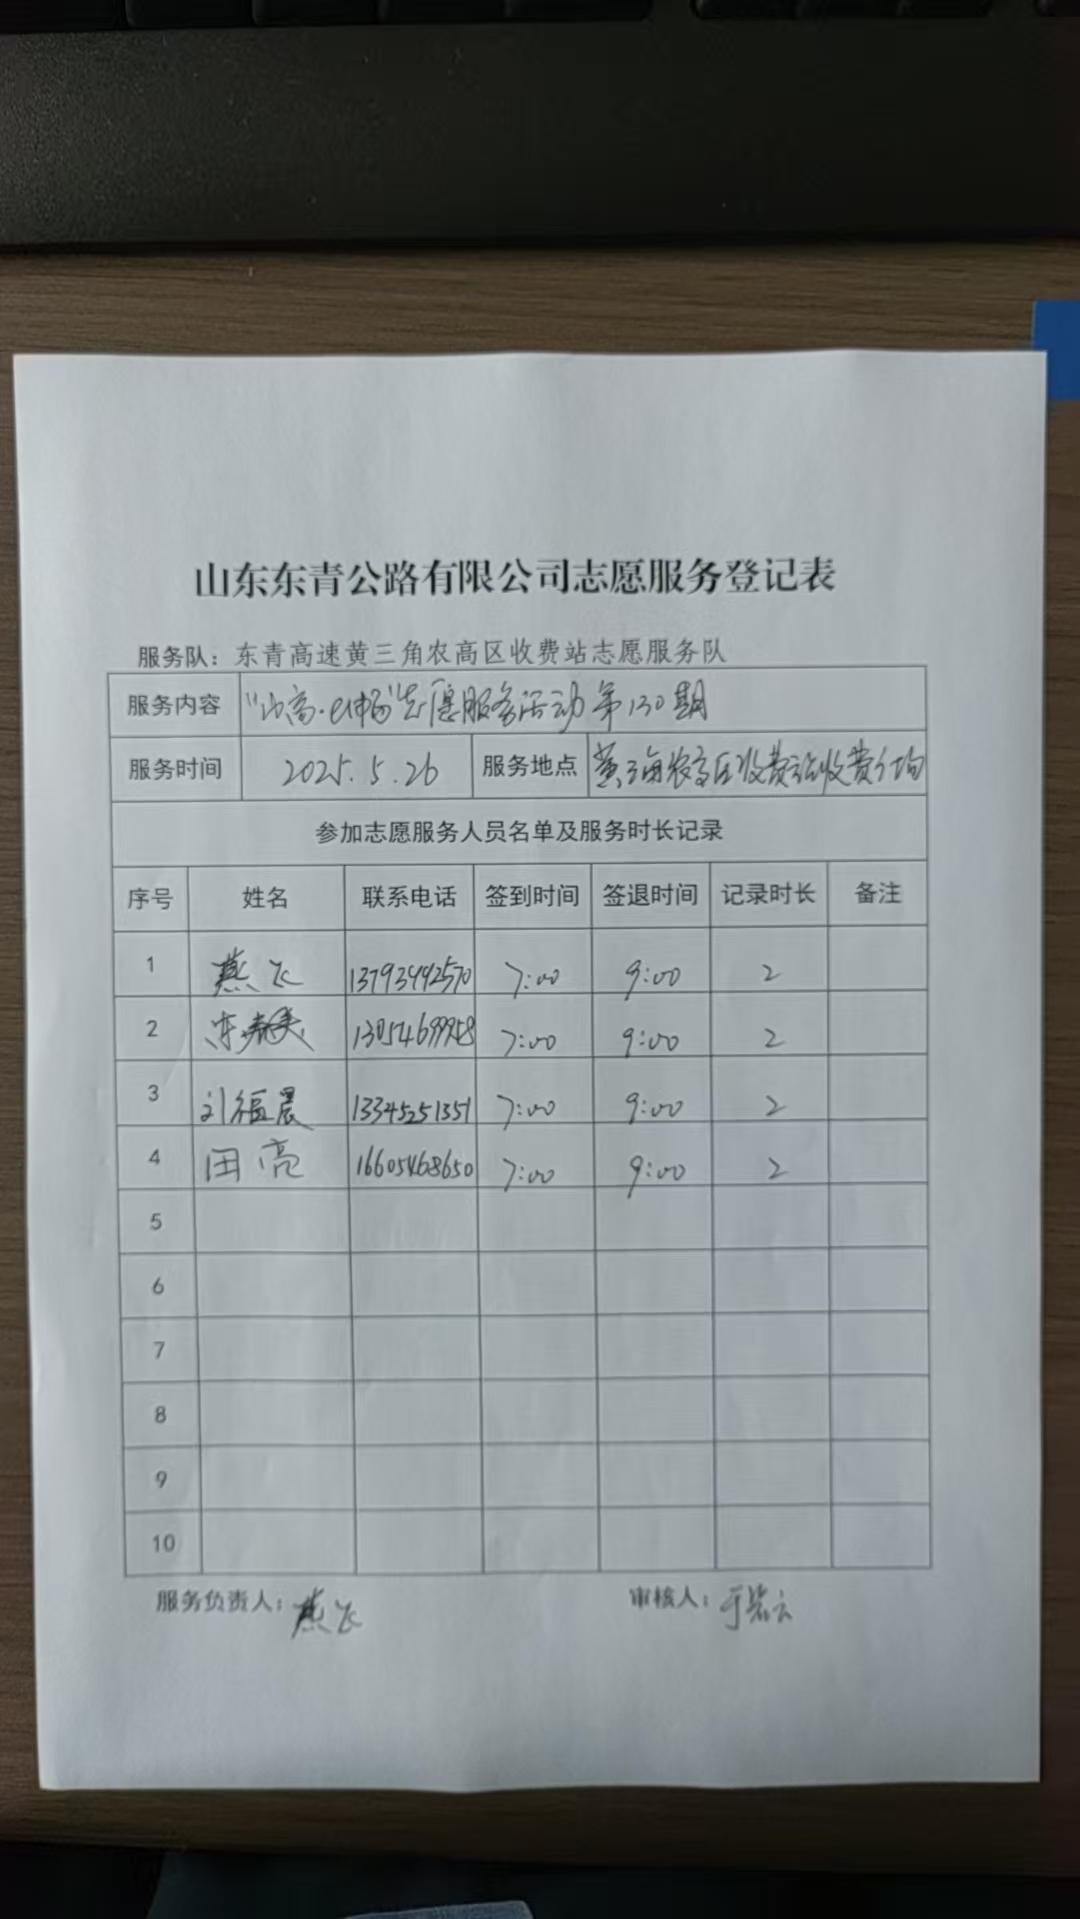 山东东青公路有限公司志愿服务登记表
服务队：东青高速黄三角农高区收费站志愿服务队
服务内容 “山高·e畅”志愿服务活动第130期
服务时间 2025.5.26 服务地点 黄三角农高区收费站收费广场
参加志愿服务人员名单及服务时长记录
序号 姓名 联系电话 签到时间 签退时间 记录时长 备注
1 燕飞 13793442570 7:00 9:00 2
2 7:00 9:00 2
3 刘福晨 13345251351 7:00 9:00 2
4 田亮 16605468650 7:00 9:00 2
5
6
7
8
9
10
服务负责人：燕飞 审核人：